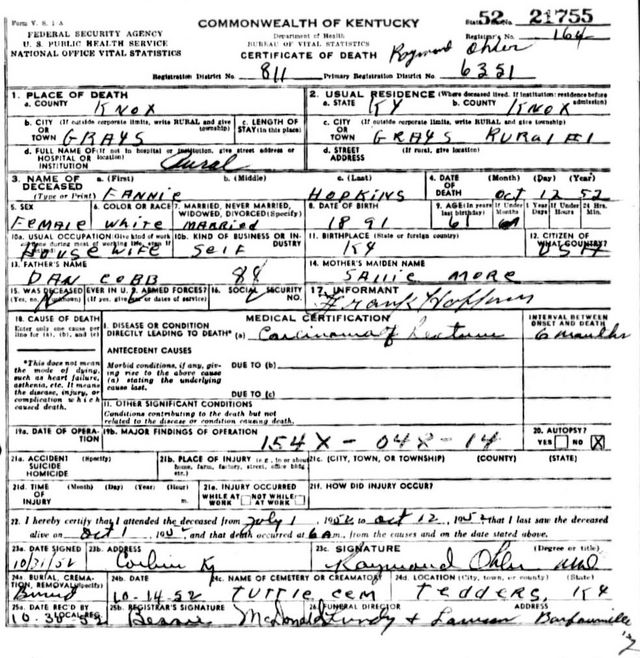 Form V. S. 1 A
COMMONWEALTH OF KENTUCKY
State No. 52 21755
FEDERAL SECURITY AGENCY
U. S. PUBLIC HEALTH SERVICE
NATIONAL OFFICE VITAL STATISTICS
Department of Health
BUREAU OF VITAL STATISTICS
CERTIFICATE OF DEATH Raymond Ohler
Registrar's No. 164
Registration District No. 811 Primary Registration District No. 6351
1. PLACE OF DEATH
a. COUNTY KNOX
2. USUAL RESIDENCE (Where deceased lived. If institution: residence before admission)
a. STATE KY b. COUNTY KNOX
b. CITY (If outside corporate limits, write RURAL and give township) OR TOWN GRAYS
c. LENGTH OF STAY (in this place)
c. CITY (If outside corporate limits, write RURAL and give township) OR TOWN GRAYS RURAL #1
d. FULL NAME OF (If not in hospital or institution, give street address or location) HOSPITAL OR INSTITUTION Rural
d. STREET ADDRESS (If rural, give location)
3. NAME OF DECEASED (Type or Print) a. (First) FANNIE b. (Middle) c. (Last) HOPKINS
4. DATE OF DEATH (Month) (Day) (Year) Oct 12 52
5. SEX FEMALE
6. COLOR OR RACE White
7. MARRIED, NEVER MARRIED, WIDOWED, DIVORCED (Specify) MARRIED
8. DATE OF BIRTH 1891
9. AGE (In years last birthday) 61 If Under 1 Year Months Days If Under 24 Hrs. Hours Min.
10a. USUAL OCCUPATION (Give kind of work done during most of working life, even if retired) HOUSE WIFE
10b. KIND OF BUSINESS OR INDUSTRY SELF
11. BIRTHPLACE (State or foreign country) KY
12. CITIZEN OF WHAT COUNTRY? USA
13. FATHER'S NAME DAN COBB 84
14. MOTHER'S MAIDEN NAME SALLIE MORE
15. WAS DECEASED EVER IN U. S. ARMED FORCES? (Yes, no, or unknown) (If yes, give war or dates of service)
16. SOCIAL SECURITY NO.
17. INFORMANT Frank Hopkins
18. CAUSE OF DEATH
Enter only one cause per line for (a), (b), and (c)
MEDICAL CERTIFICATION
INTERVAL BETWEEN ONSET AND DEATH
I. DISEASE OR CONDITION DIRECTLY LEADING TO DEATH* (a) Carcinoma of Rectum 6 months
*This does not mean the mode of dying, such as heart failure, asthenia, etc. It means the disease, injury, or complication which caused death.
ANTECEDENT CAUSES
Morbid conditions, if any, giving rise to the above cause (a) stating the underlying cause last.
DUE TO (b)
DUE TO (c)
II. OTHER SIGNIFICANT CONDITIONS
Conditions contributing to the death but not related to the disease or condition causing death.
19a. DATE OF OPERATION
19b. MAJOR FINDINGS OF OPERATION
154X - 048 - 14
20. AUTOPSY?
YES NO X
21a. ACCIDENT SUICIDE HOMICIDE (Specify)
21b. PLACE OF INJURY (e.g., in or about home, farm, factory, street, office bldg., etc.)
21c. (CITY, TOWN, OR TOWNSHIP) (COUNTY) (STATE)
21d. TIME OF INJURY (Month) (Day) (Year) (Hour) m.
21e. INJURY OCCURRED WHILE AT WORK NOT WHILE AT WORK
21f. HOW DID INJURY OCCUR?
22. I hereby certify that I attended the deceased from July 1, 1952 to Oct 12, 1952 that I last saw the deceased
alive on Oct 1, 1952 and that death occurred at 6 a m., from the causes and on the date stated above.
23a. DATE SIGNED 10/31/52
23b. ADDRESS Corbin Ky
23c. SIGNATURE (Degree or title) Raymond Ohler MD
24a. BURIAL, CREMATION, REMOVAL (Specify) Buried
24b. DATE 10-14-52
24c. NAME OF CEMETERY OR CREMATORY TUTTIE CEM
24d. LOCATION (City, town, or county) (State) TEDDERS, KY
25a. DATE REC'D BY LOCAL REG. 10-31-52
25b. REGISTRAR'S SIGNATURE Bessie McDonald
26. FUNERAL DIRECTOR ADDRESS Lawson Barbourville